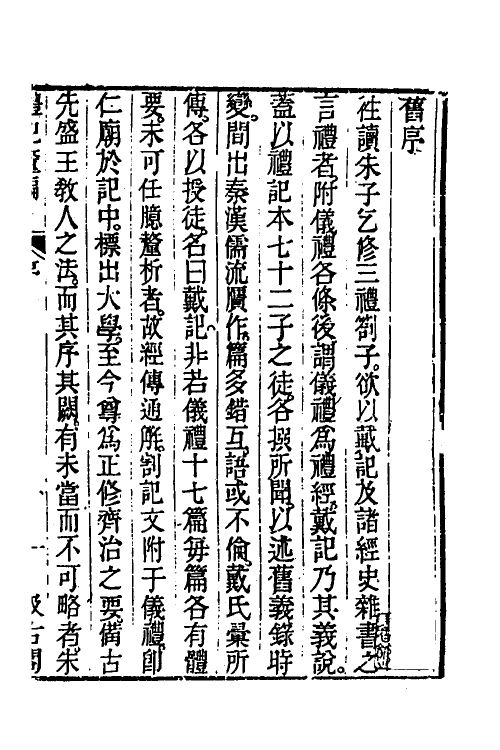 舊序
往讀朱子乞修三禮劄子。欲以戴記及諸經史雜書之
言禮者。附儀禮各條後。謂儀禮為禮經。戴記乃其義說。
蓋以禮記本七十二子之徒。各撰所聞。以述舊義。錄時
變。間出秦漢儒流贗作。篇多錯互。語或不倫。戴氏彙所
傳。各以授徒。名曰戴記。非若儀禮十七篇每篇各有體
要。未可任臆釐析者。故經傳通解。割記文附于儀禮。卽
仁廟於記中。標出大學。至今尊為正修齊治之要。備古
先盛王教人之法。而其序其闕。有未當而不可略者。朱
序
一
汲古閣